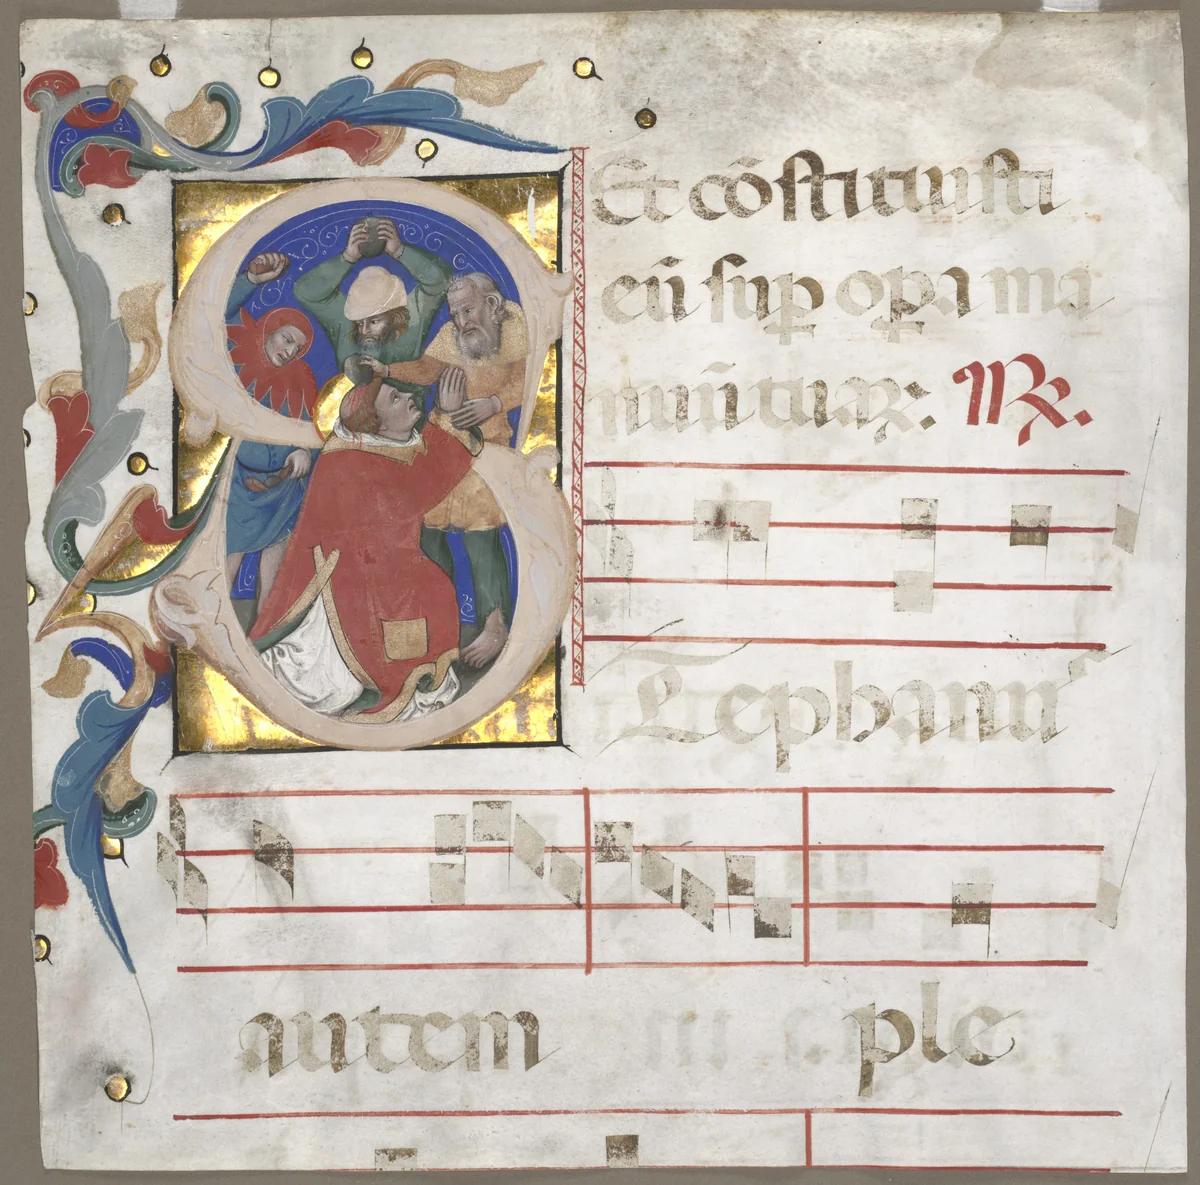 Et cōstituisti
eū sup opa ma
nuū tuaꝝ: ℟.
Stephanus
autem ple